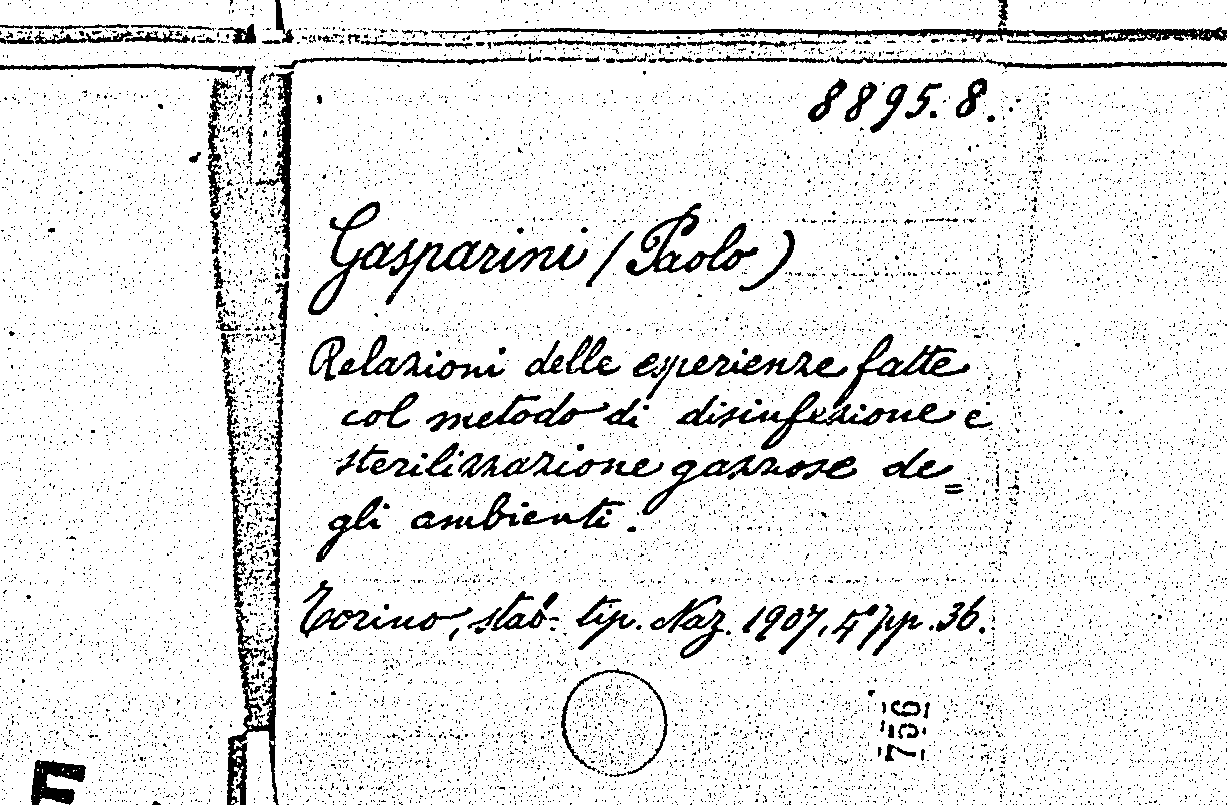 8895.8.
Gasparini (Paolo)
Relazioni delle esperienze fatte
col metodo di disinfezione e
sterilizzazione gazzose de=
gli ambienti.
Torino, stab. tip. Naz. 1907, 4° pp. 36.
756
E